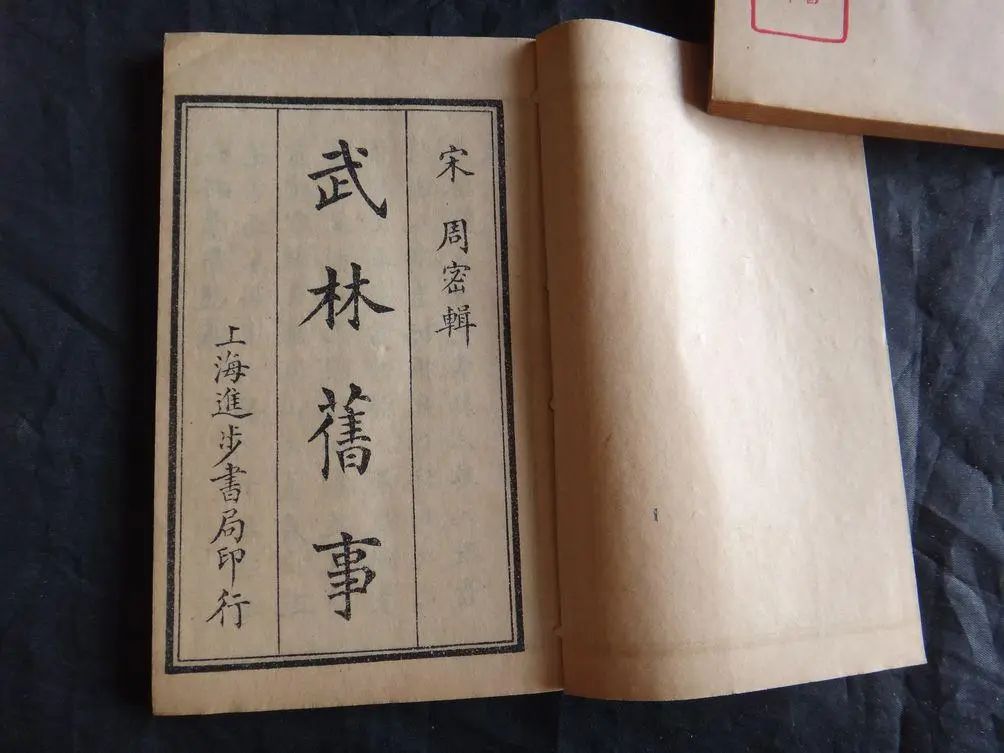 宋 周密輯
武林舊事
上海進步書局印行